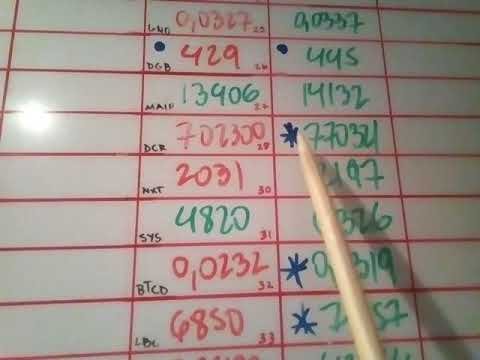 GNO 0,0327 25 0,0337
DGB 429 26 445
MAID 13406 27 14132
DCR 702300 28 77034
NXT 2031 30 197
SYS 4820 31 326
BTCD 0,0232 32 0, 319
LBC 6850 33 7 57